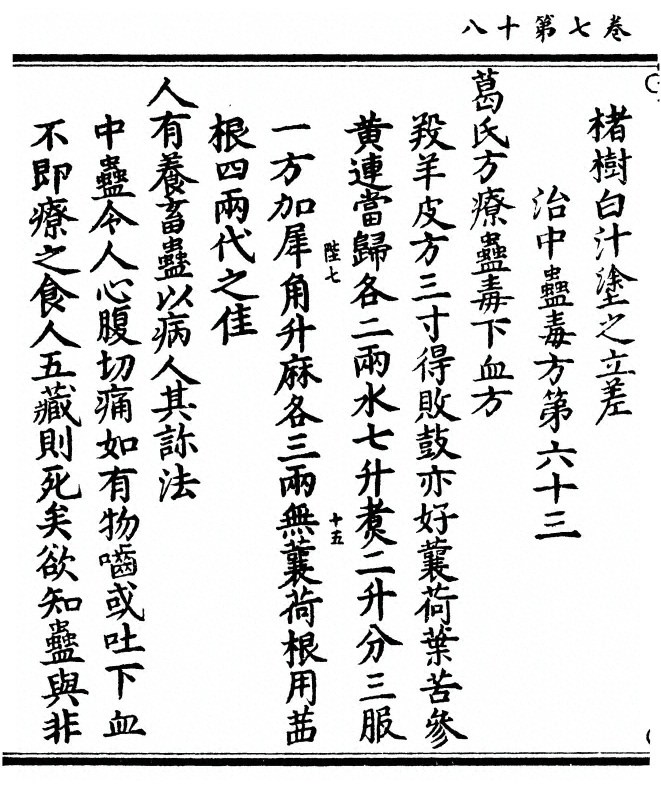 卷七第十八
楮樹白汁塗之立差
治中蠱毒方第六十三
葛氏方療蠱毒下血方
羖羊皮方三寸得敗鼓亦好蘘荷葉苦參
黄連當歸各二兩水七升煮二升分三服
陛七
十五
一方加犀角升麻各三兩無蘘荷根用茜
根四兩代之佳
人有養畜蠱以病人其診法
中蠱令人心腹切痛如有物嚙或吐下血
不即療之食人五藏則死矣欲知蠱與非